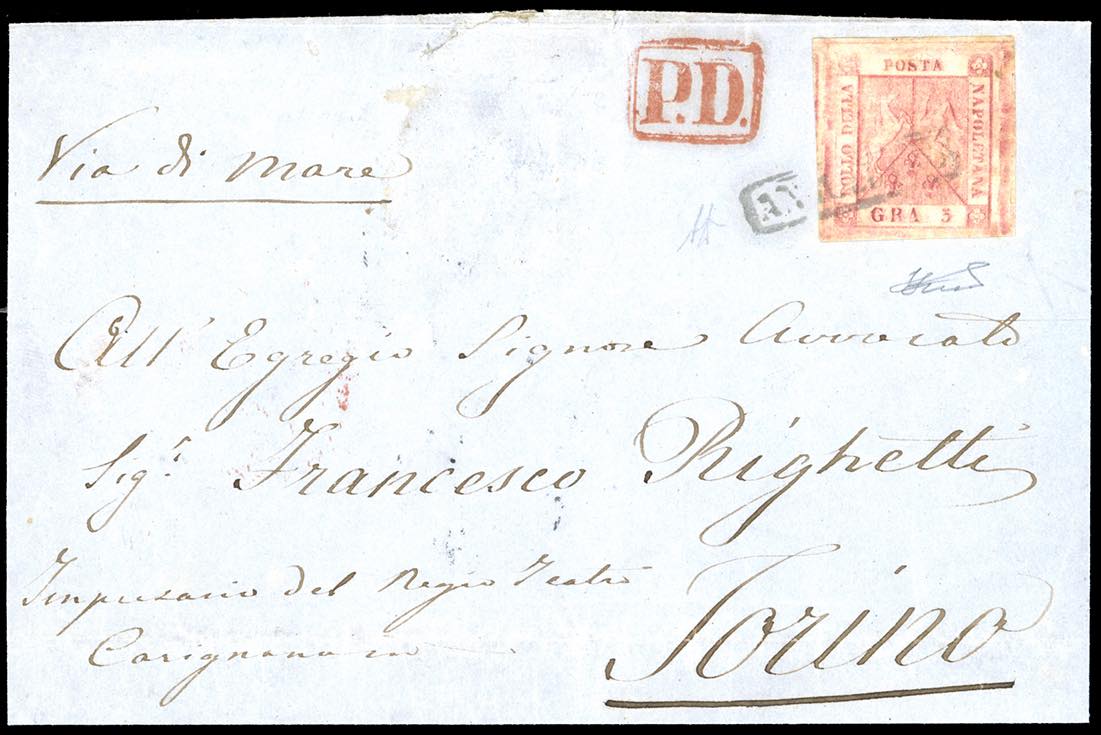 Via di mare
P.D.
POSTA
BOLLO DELLA
NAPOLETANA
GRA 5
All' Egregio Signore Avvocato
Sig.r Francesco Righetti
Impresario del Regio Teatro
Carignano in
Torino